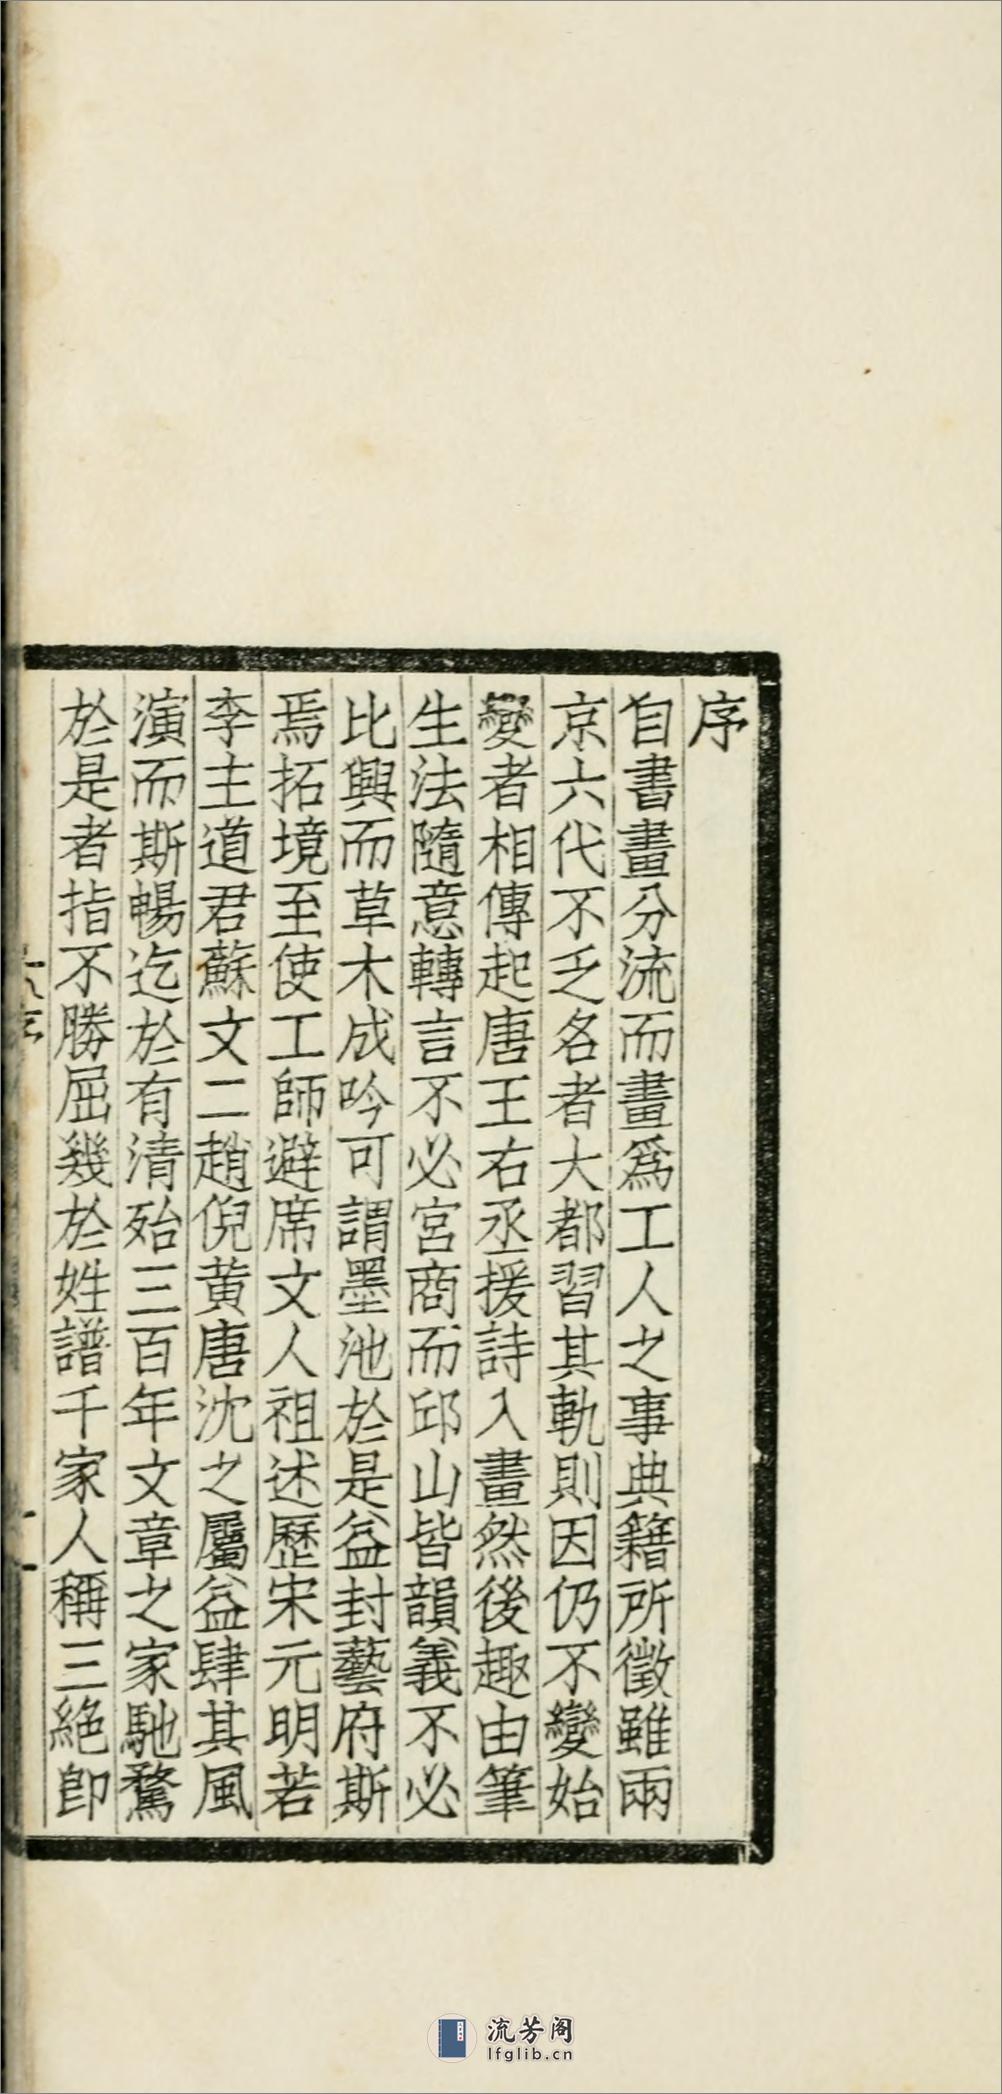 序
自書畫分流而畫爲工人之事典籍所徵雖兩
京六代不乏名者大都習其軌則因仍不變始
變者相傳起唐王右丞援詩入畫然後趣由筆
生法隨意轉言不必宮商而邱山皆韻義不必
比興而草木成吟可謂墨池於是益封藝府斯
焉拓境至使工師避席文人祖述歷宋元明若
李主道君蘇文二趙倪黃唐沈之屬益肆其風
演而斯暢迄於有清殆三百年文章之家馳騖
於是者指不勝屈幾於姓譜千家人稱三絕卽
流芳阁
lfglib.cn